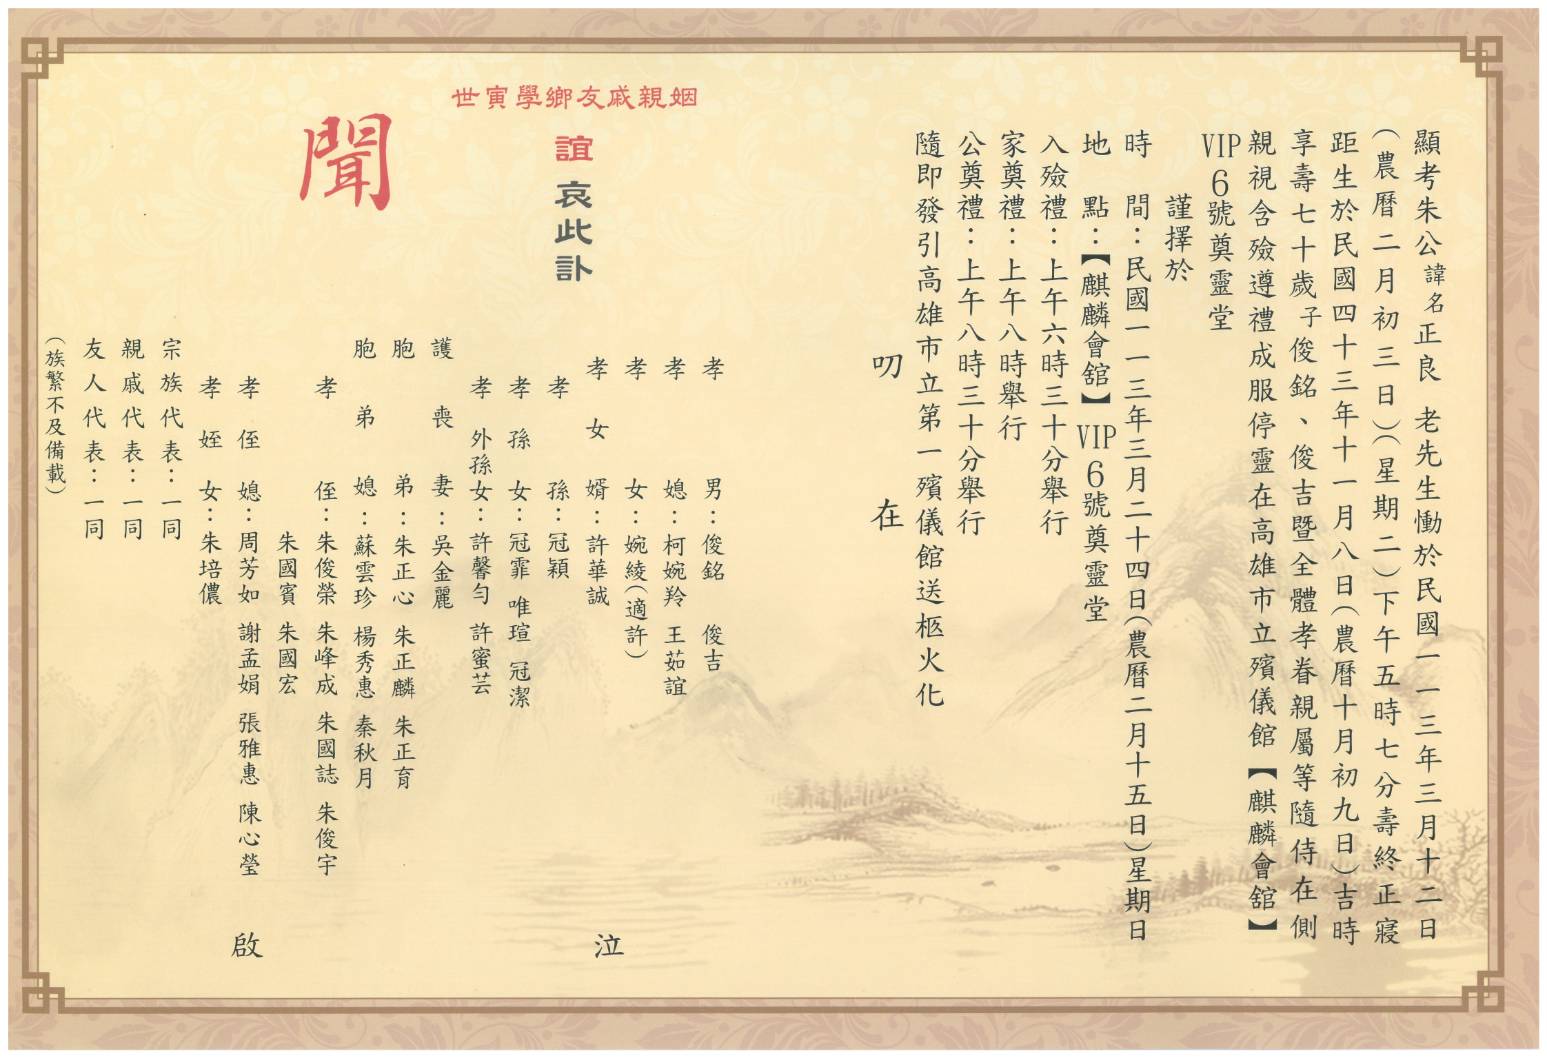 顯考朱公諱名正良 老先生慟於民國一一三年三月十二日
(農曆二月初三日)(星期二)下午五時七分壽終正寢
距生於民國四十三年十一月八日(農曆十月初九日)吉時
享壽七十歲子俊銘、俊吉暨全體孝眷親屬等隨侍在側
親視含殮遵禮成服停靈在高雄市立殯儀館【麒麟會舘】
VIP6號奠靈堂
謹擇於
時 間:民國一一三年三月二十四日(農曆二月十五日)星期日
地 點:【麒麟會舘】VIP6號奠靈堂
入殮禮:上午六時三十分舉行
家奠禮:上午八時舉行
公奠禮:上午八時三十分舉行
隨即發引高雄市立第一殯儀館送柩火化
叨 在
姻親戚友鄉學寅世
誼 哀此訃
聞
孝 男:俊銘 俊吉
孝 媳:柯婉羚 王茹誼
孝 女:婉綾(適許)
孝女婿:許華誠
孝 孫:冠穎
孝孫女:冠霏 唯瑄 冠潔
孝外孫女:許馨勻 許蜜芸
護喪妻:吳金麗
胞 弟:朱正心 朱正麟 朱正育
胞弟媳:蘇雲珍 楊秀惠 秦秋月
孝 侄:朱俊榮 朱峰成 朱國誌 朱俊宇
朱國賓 朱國宏
孝侄媳:周芳如 謝孟娟 張雅惠 陳心瑩
孝姪女:朱培儂
宗族代表:一同
親戚代表:一同
友人代表:一同
(族繁不及備載)
泣
啟